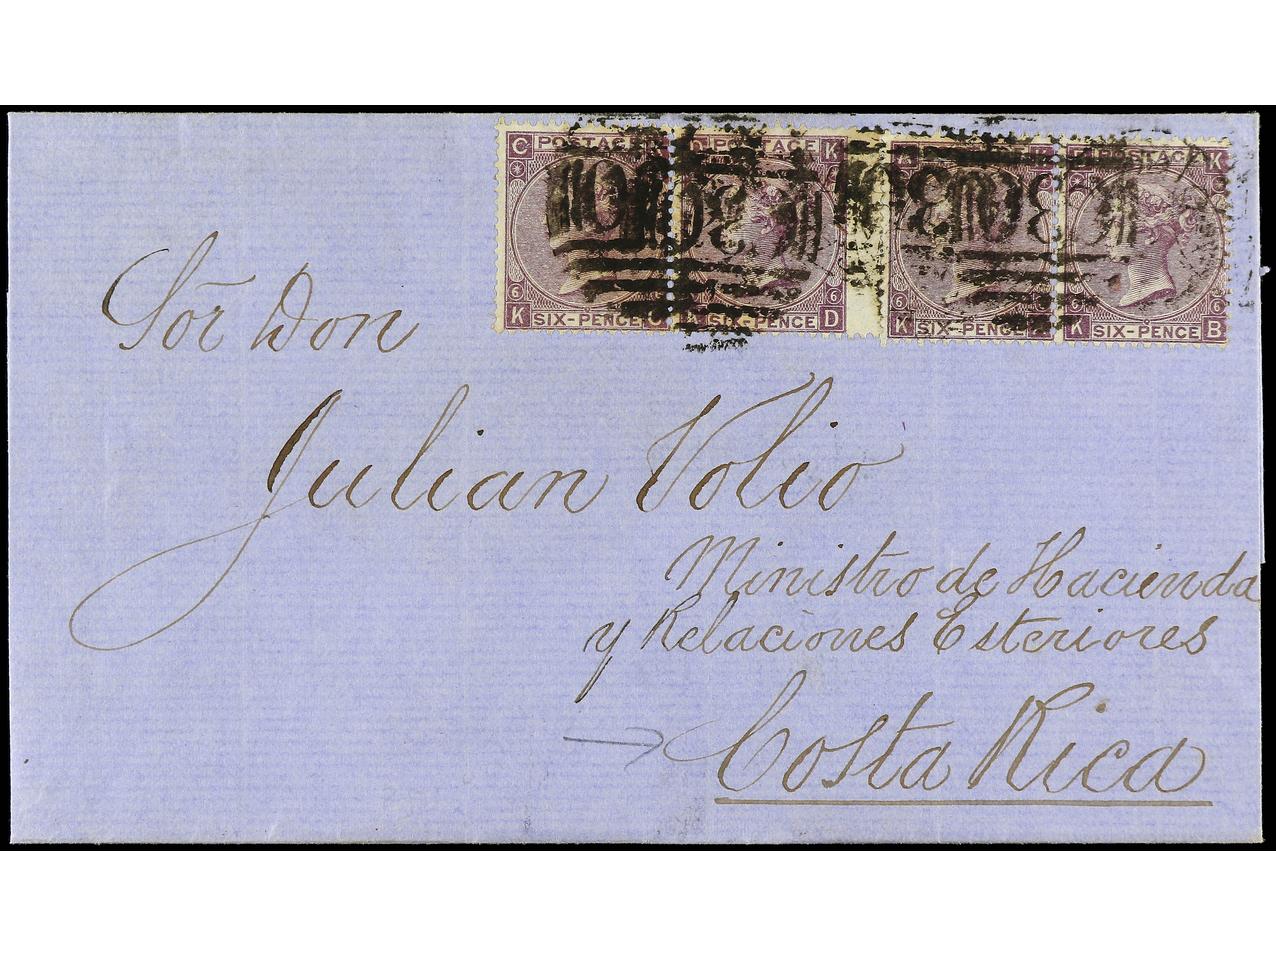 C POSTAGE POSTAGE K POSTAGE K
6 6 6 6 6
K SIX-PENCE SIX-PENCE D K SIX-PENCE K SIX-PENCE B
Sōr Don
Julian Volio
Ministro de Hacienda
y Relaciones Esteriores
Costa Rica